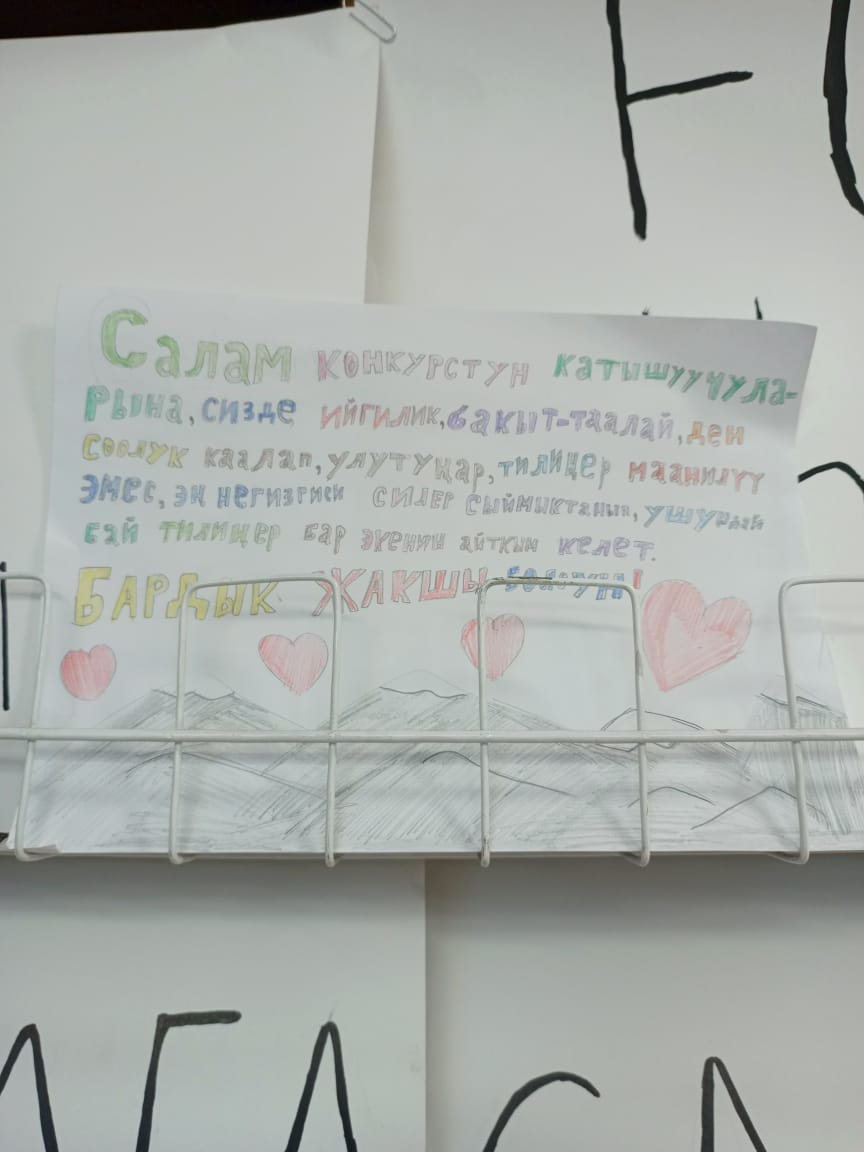 Салам конкурстун катышуучула-
рына, сизде ийгилик, бакыт-таалай, ден
соолук каалап, улутуңар, тилиңер маанилүү
эмес, эң негизгиси силер сыймыктанып, ушундай
бай тилиңер бар экенин айткым келет.
Бардык жакшы болотуна!